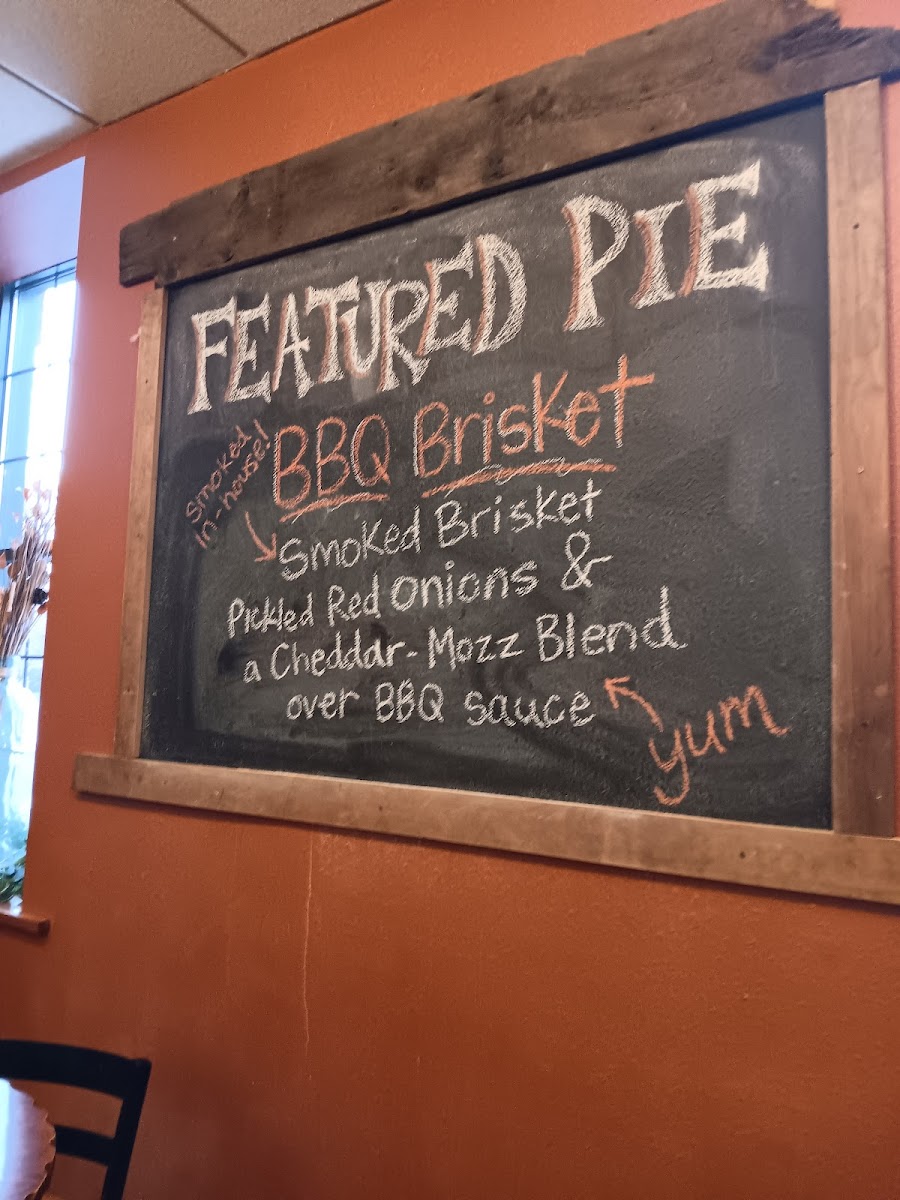 FEATURED PIE
BBQ Brisket
Smoked
In-house!
Smoked Brisket
Pickled Red onions &
a Cheddar-Mozz Blend
over BBQ sauce
yum